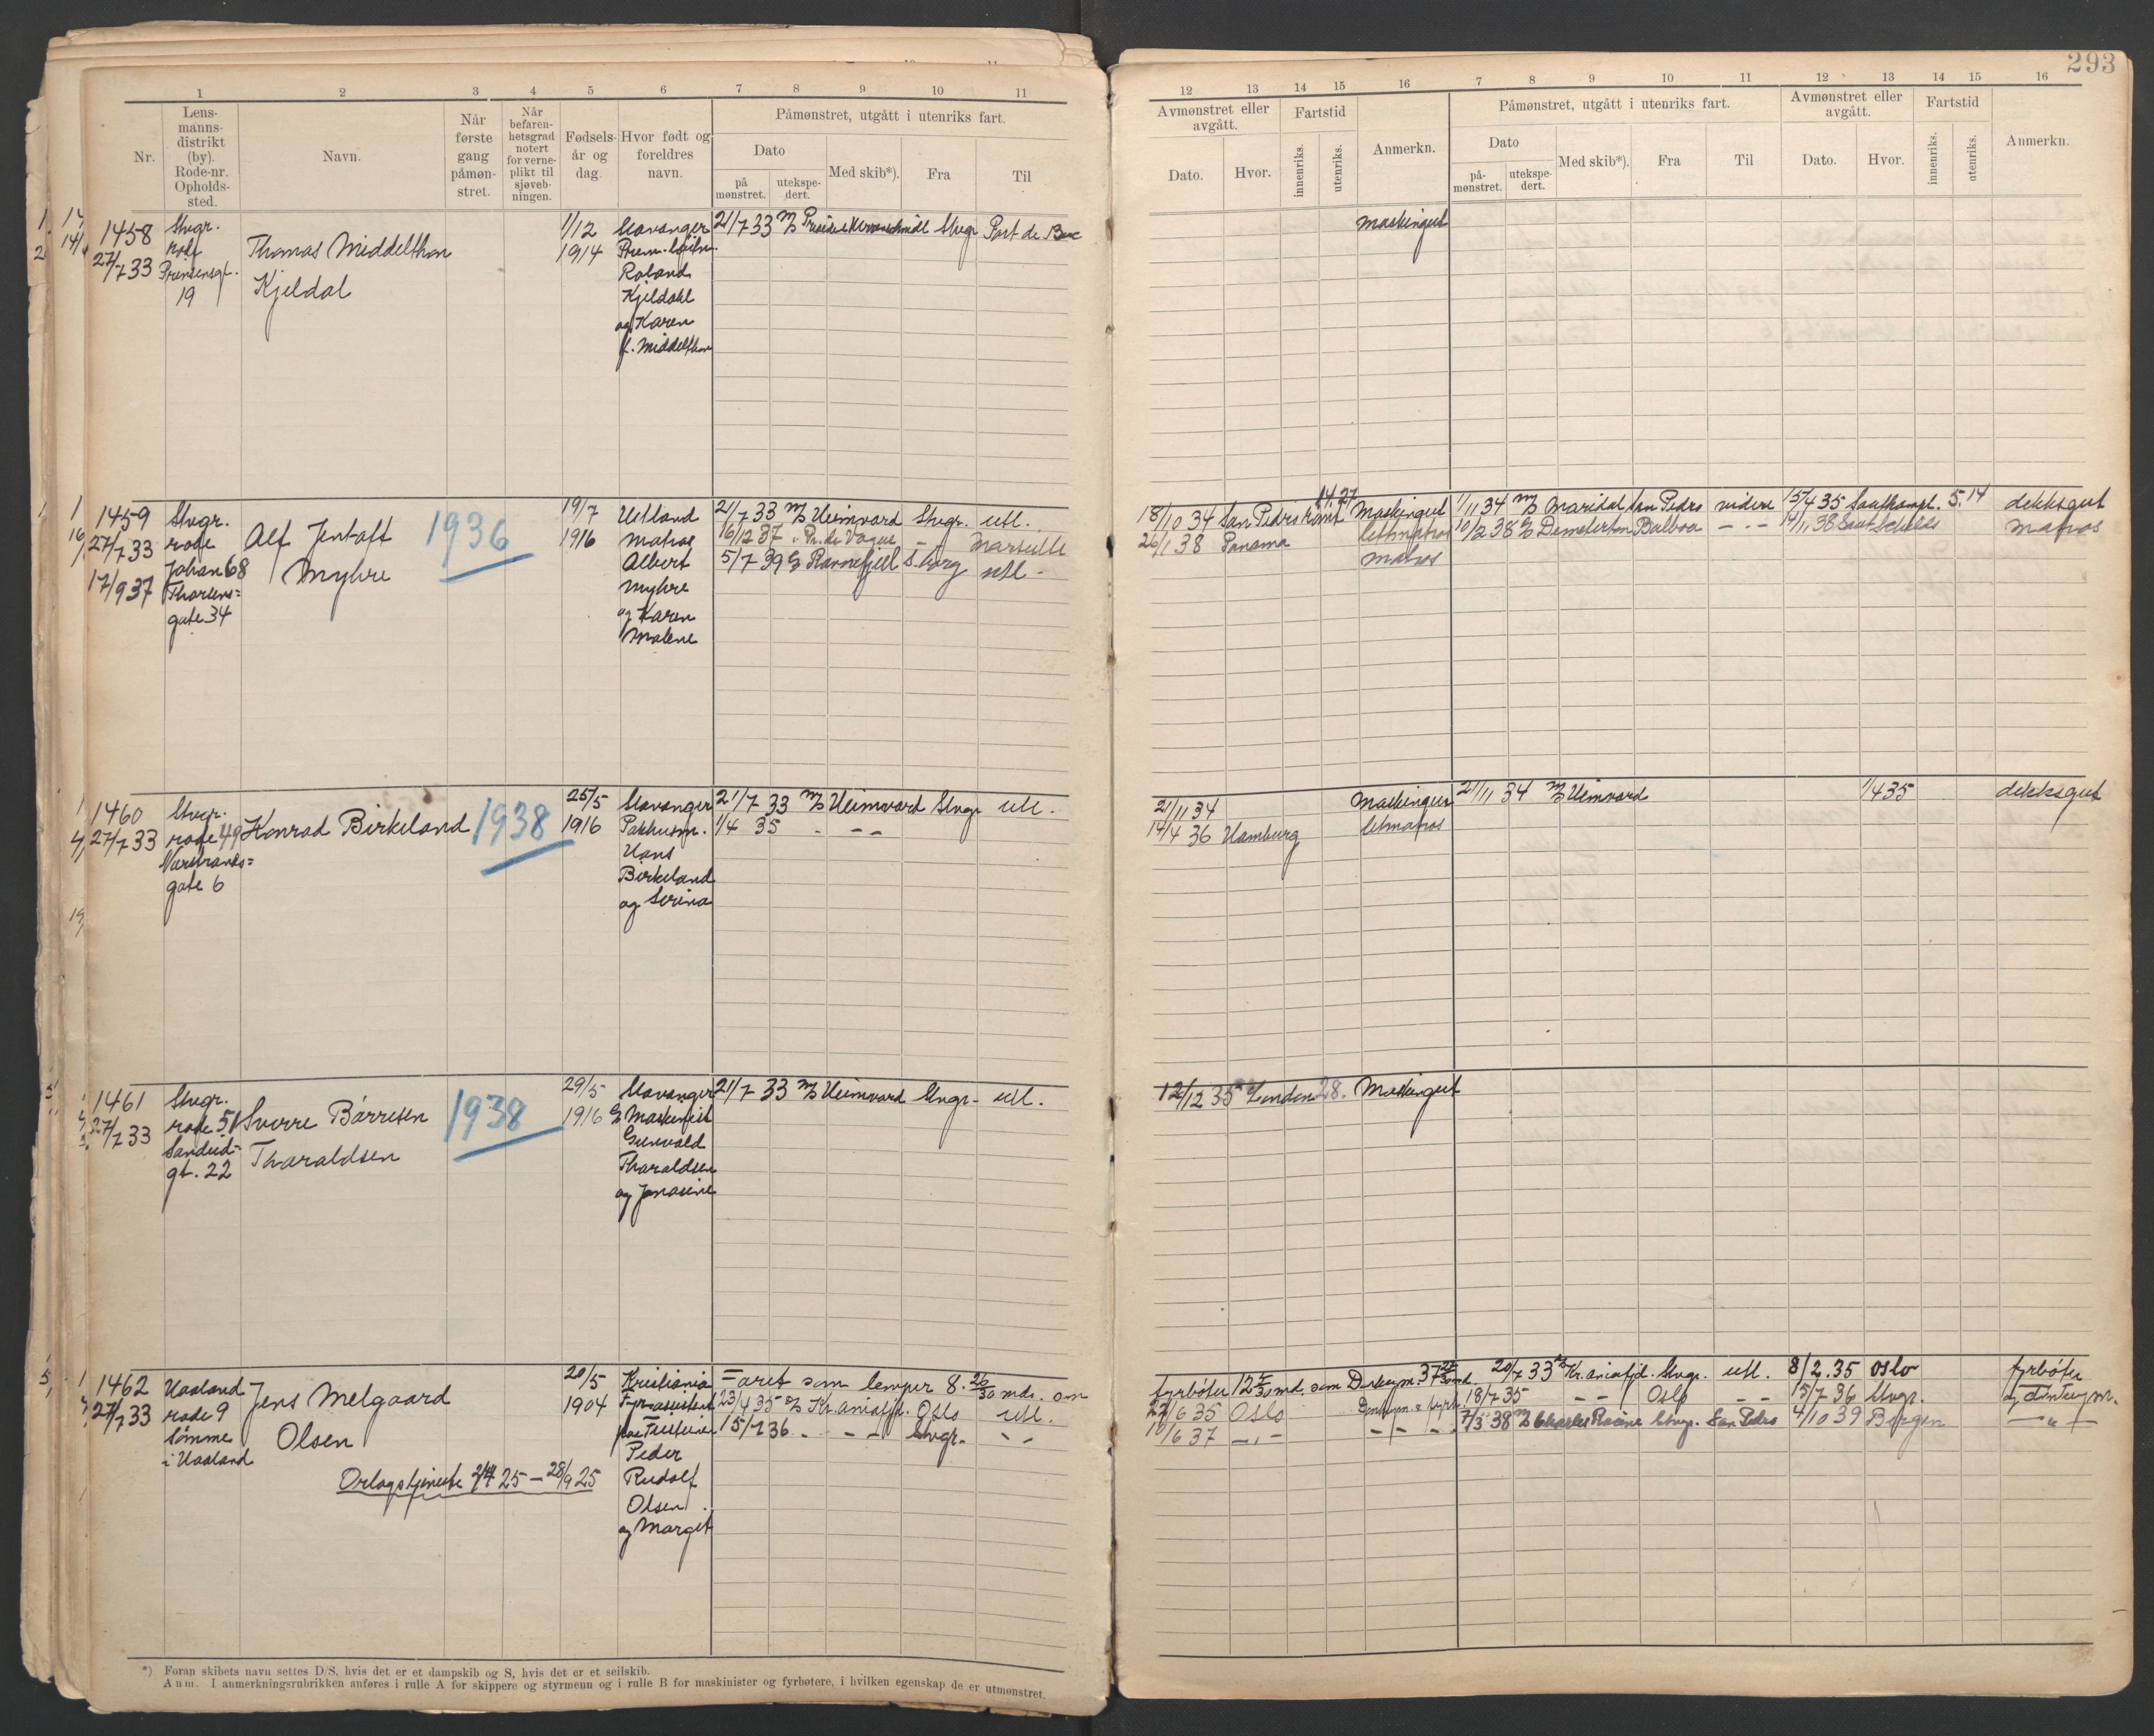 293
1 2 3 4 5 6 7 8 9 10 11
Nr.
Lens-
manns-
distrikt
(by).
Rode-nr.
Opholds-
sted.
Navn.
Når
første
gang
påmøn-
stret.
Når
befaren-
hetsgrad
notert
for verne-
plikt til
sjøveb-
ningen.
Fødsels-
år og
dag.
Hvor født og
foreldres
navn.
Påmønstret, utgått i utenriks fart.
Dato
på
mønstret.
utekspe-
dert.
Med skib*).
Fra
Til
12 13 14 15 16 7 8 9 10 11 12 13 14 15 16
Avmønstret eller
avgått.
Dato.
Hvor.
Fartstid
innenriks.
utenriks.
Anmerkn.
Påmønstret, utgått i utenriks fart.
Dato
på-
mønstret.
utekspe-
dert.
Med skib*).
Fra
Til
Avmønstret eller
avgått.
Dato.
Hvor.
Fartstid
innenriks.
utenriks.
Anmerkn.
1458
27/7 33
Stvgr.
Prinsensgt.
19
Thomas Middelthon
Kjeldal
1/12
1914
Stavanger
Roland
Kjeldahl
og Karen
f. Middelthon
21/7 33 Stvgr Port de Bouc
Maskingut
1459
27/7 33
17/9 37
Stvgr.
rode
68
Johan
Thorsens=
gate 34
Alf Jentoft
Myhre
1936
19/7
1916
Hetland
matros
Albert
Myhre
og Karen
Malene
21/7 33 M/S Heimvard Stvgr. utl.
16/12 37 Marseille
5/7 39 D/S Ravnefjell S.borg utl.
18/10 34 San Pedro 14.27 Maskingut 1/11 34 M/S Maridal San Pedro videre 15/4 35 Southampt. 5.14 dekksgut
26/1 38 Panama letmatros 10/2 38 D/S Demeterton Balboa 14/11 38 matros
matros
1460
27/7 33
Stvgr.
rode 49
gate 6
Konrad Birkeland
1938
25/5
1916
Stavanger
Pakhusm.
Hans
Birkeland
og Serina
21/7 33 M/S Heimvard Stvgr utl.
1/4 35 - - -
21/11 34 Maskingut 21/11 34 M/S Heimvard 1/4 35 dekksgut
14/4 36 Hamburg letmatros
1461
27/7 33
Stvgr.
rode 51
Sandeid=
gt. 22
Sverre Børresen
Tharaldsen
1938
29/5
1916
Stavanger
Maskinist
Gunvald
Tharaldsen
og Jonasine
21/7 33 M/S Heimvard Stvgr. utl.
12/12 35 London 28. Maskingut
1462
27/7 33
Haaland
rode 9
Sømme
i Haaland
Jens Melgaard
Olsen
Orlogstjeneste 2/4 25 – 28/9 25
20/5
1904
Kristiania
Fyrassistent
paa Feistein
Peder
Rudolf
Olsen
og Margit
Faret som lemper 8. 26/30 mdr. som
23/4 35 D/S Kr.aniafj. Oslo utl.
15/7 36 - - - Stvgr. - -
fyrbøter 12 7/30 md. som Donkeym. 37 25/30 md. 20/7 33 Kr.aniafjd. Stvgr. utl. 8/2.35 Oslo fyrbøter
22/6 35 Oslo Donkeym. & fyrb. 18/7 35 - - Oslo - - 15/7 36 Stvgr. og donkeym.
10/6 37 - - - 7/3 38 M/S Charles Racine Stvgr. San Pedro 4/10 39 Bergen - " -
*) Foran skibets navn settes D/S, hvis det er et dampskib og S, hvis det er et seilskib.
Anm. I anmerkningsrubrikken anføres i rulle A for skippere og styrmenn og i rulle B for maskinister og fyrbøtere, i hvilken egenskap de er utmønstret.